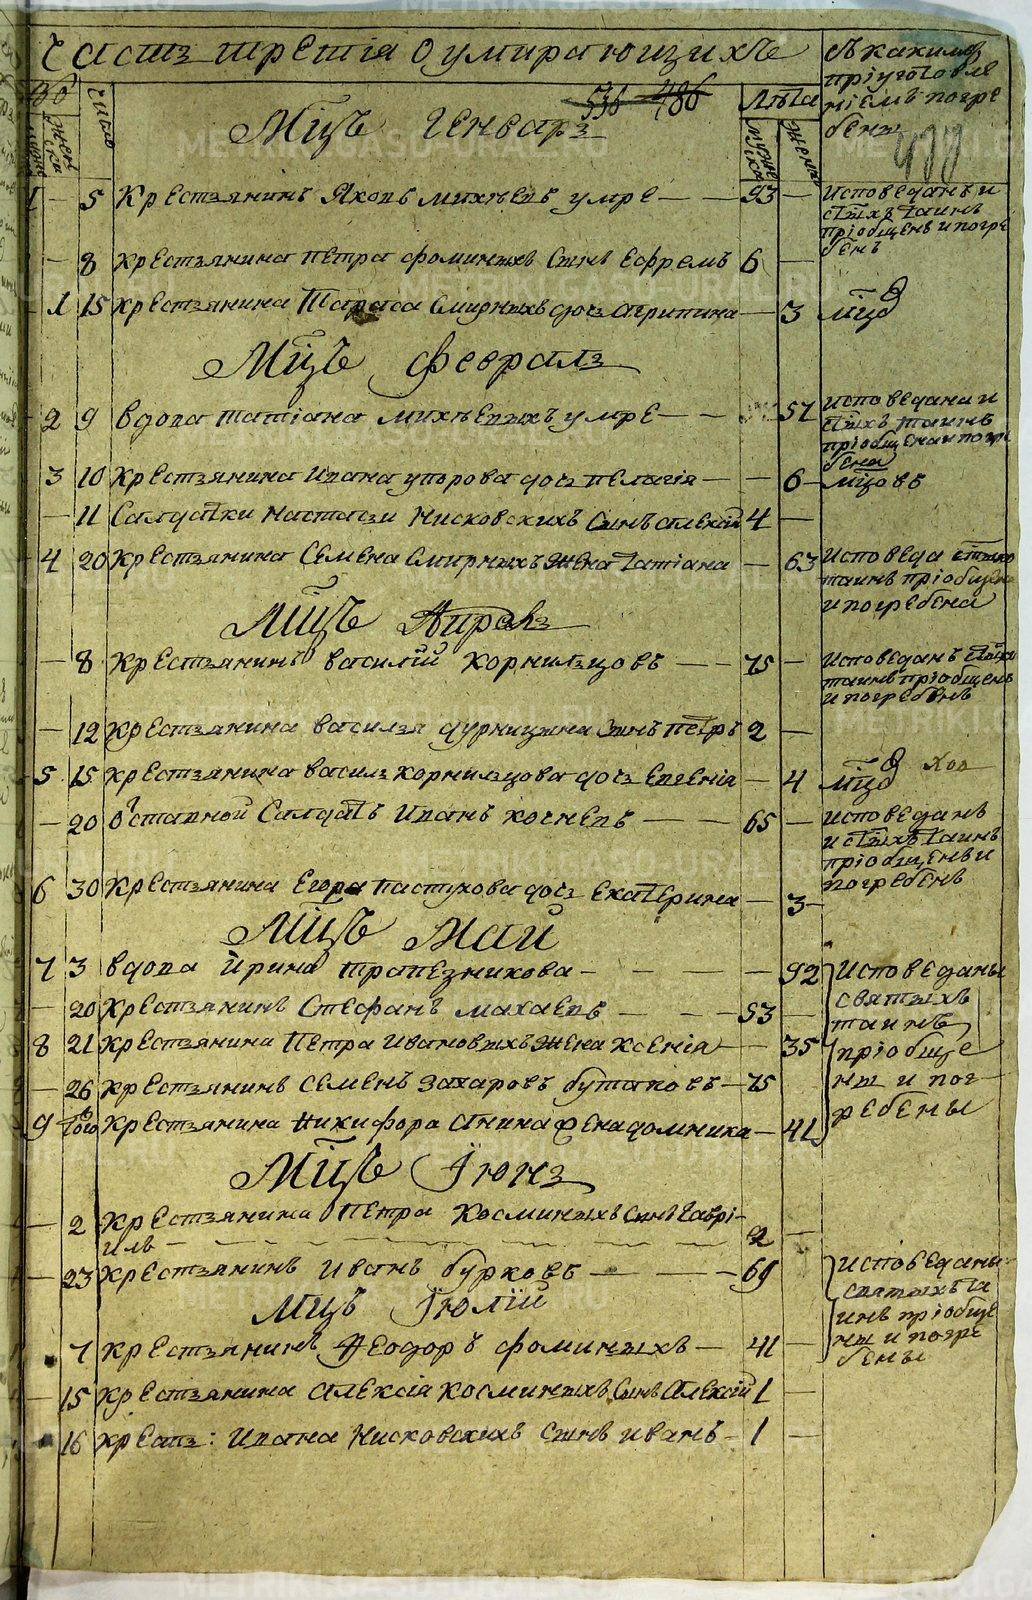 Часть третія о умирающихъ
Съ какимъ
пріуготовле
ніемъ погре
бены
Число
Лѣта
536 486
мужеска
женска
Мцъ Генварь
1 — 5 Крестьянинъ Яковъ михѣевъ умре — — 93 —
Исповеданъ и
стыхъ таинъ
пріобщенъ и погре
бенъ
— 8 крестьянина Петра фоминыхъ сынъ Ефремъ 6 —
— 1 15 крестьянина Тараса Смирныхъ дочь агрипина — 3
Мцъ февраль
2 9 вдова татіана михѣевыхъ умре — — 57
Исповедана и
стыхъ таинъ
пріобщена и погре
бена
3 10 крестьянина Ивана упорова дочь пелагія — — 6
— 11 Салдатки Настасіи Нисковскихъ сынъ алексій 4 —
4 20 крестьянина Семена Смирныхъ жена татіана — 63
Исповеда
таинъ пріобщена
и погребена
Мцъ Апрель
— 8 крестьянинъ василій корнильцовъ — — 75 —
Исповеданъ
таинъ пріобщенъ
и погребенъ
— 12 крестьянина василья дурницына сынъ петръ 2 —
5 15 крестьянина василья корнильцова дочь евгенія — 4
— 20 отставной Салдатъ Иванъ кочневъ — — 65 —
Исповеданъ
и стыхъ таинъ
пріобщенъ и
погребенъ
6 30 крестьянина Егора пастухова дочь екатерина — 3
Мцъ Май
7 3 вдова Ирина трапезникова — — — — 92
Исповеданы
святыхъ
таинъ
— 20 крестьянинъ Стефанъ махаевъ — — — 53 —
8 21 крестьянина Петра Ивановыхъ жена ксенія — 35
пріобще
ны и пог
ребены
— 26 крестьянинъ семенъ захаровъ бутаковъ — 75 —
9 того крестьянина Никифора Анина жена домника — 41
Мцъ Іюнь
— 2 крестьянина Петра косминыхъ сынъ гаврі-
илъ — 2 —
— 23 крестьянинъ Иванъ бурковъ — — — 69
Исповеданы
святыхъ та
инъ пріобще
ны и погре
бены
Мцъ Іюлій
7 крестьянинъ Феодоръ фоминыхъ — 41 —
— 15 крестьянина алексія косминыхъ сынъ Алексій 1 —
16 крест: Ивана Нисковскихъ сынъ иванъ — 1 —